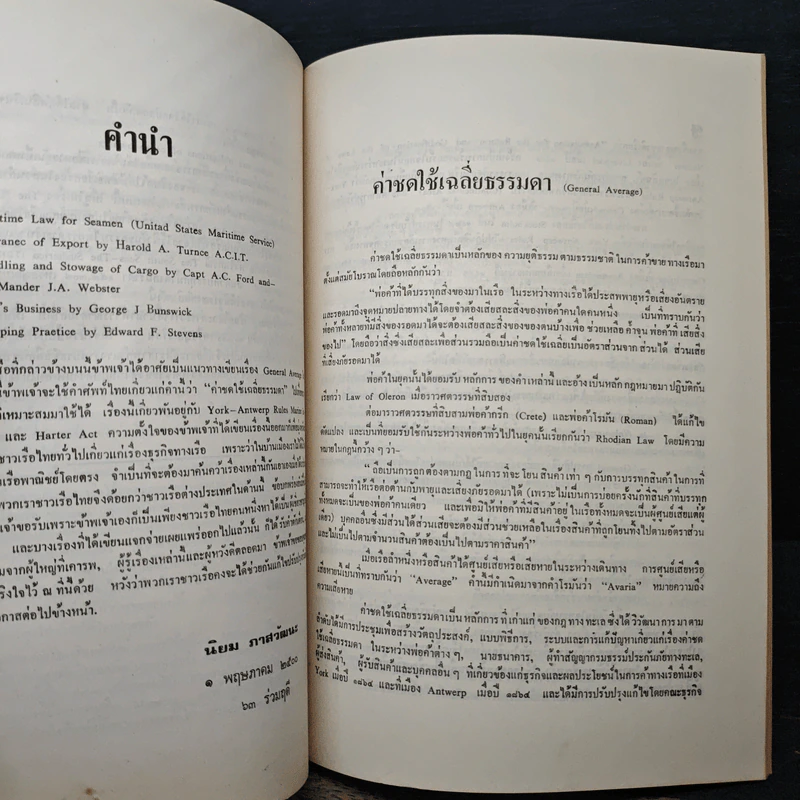 คำนำ
time Law for Seamen (Unitad States Maritime Service)
ranec of Export by Harold A. Turnce A.C.I.T.
dling and Stowage of Cargo by Capt A.C. Ford and–
Mander J.A. Webster
's Business by George J Bunswick
ping Praetice by Edward F. Stevens
ที่กล่าวข้างบนนี้ข้าพเจ้าได้อาศัยเป็นแนวทางเขียนเรื่อง General Average
ข้าพเจ้าจะใช้คำศัพท์ไทยเกี่ยวแก่คำนี้ว่า "ค่าชดใช้เฉลี่ยธรรมดา"
เหมาะสมมาใช้ได้ เรื่องนี้เกี่ยวพ่นอยู่กับ York–Antwerp Rules
และ Harter Act ความตั้งใจของข้าพเจ้าที่ได้เขียนเรื่องนี้
ชาวเรือไทยทั่วไปเกี่ยวแก่เรื่องธุรกิจทางเรือ เพราะว่าในบ้านเมืองเรา
เรือพาณิชย์โดยตรง จำเป็นที่จะต้องมาค้นคว้าเรื่องเหล่านี้กันเอาเอง
พวกเราชาวเรือไทยจึงด้อยกว่าชาวเรือต่างประเทศในด้านนี้
เจ้าขอรับเพราะข้าพเจ้าเองก็เป็นเพียงชาวเรือไทยคนหนึ่ง
และบางเรื่องที่ได้เขียนแจกจ่ายเผยแพร่ออกไปแล้วนั้น
จากผู้ใหญ่ที่เคารพ, ผู้รู้เรื่องเหล่านี้และผู้หวังดีตลอดมา
ริงใจไว้ ณ ที่นี้ด้วย หวังว่าพวกเราชาวเรือคงจะได้ช่วยกันแก้ไข
กาสต่อไปข้างหน้า.
นิยม ภาสวัฒนะ
๑ พฤษภาคม ๒๕๐๐
๖๓ ร่วมฤดี
ค่าชดใช้เฉลี่ยธรรมดา (General Average)
ค่าชดใช้เฉลี่ยธรรมดาเป็นหลักของ ความยุติธรรม ตามธรรมชาติ ในการค้าขาย ทางเรือมา
ตั้งแต่สมัยโบราณโดยถือหลักกันว่า
"พ่อค้าที่ได้บรรทุกสิ่งของมาในเรือ ในระหว่างทางเรือได้ประสพพายุหรือเสี่ยงอันตราย
และรอดมาถึงจุดหมายปลายทางได้โดยจำต้องเสียสละสิ่งของพ่อค้าคนใดคนหนึ่ง เป็นที่ทราบกันว่า
พ่อค้าทั้งหลายที่มีสิ่งของรอดมาได้จะต้องเสียสละสิ่งของของตนบ้างเพื่อ ช่วยเหลือ ค้ำจุน พ่อค้าที่ เสียสิ่ง
ของไป" โดยถือว่าสิ่งซึ่งเสียสละเพื่อส่วนรวมถือเป็นค่าชดใช้เฉลี่ยเป็นอัตราส่วนจาก ส่วนได้ ส่วนเสีย
ที่เสี่ยงภัยรอดมาได้
พ่อค้าในยุคนั้นได้ยอมรับ หลักการ ของคำเหล่านี้ และอ้างเป็นหลัก กฎหมายมา ปฏิบัติกัน
เรียกว่า Law of Oleron เมื่อราวศตวรรษที่สิบสอง
ต่อมาราวศตวรรษที่สิบสามพ่อค้ากรีก (Crete) และพ่อค้าโรมัน (Roman) ได้แก้ไข
ดัดแปลง และเป็นที่ยอมรับใช้กันระหว่างพ่อค้าทั่วไปในยุคนั้นเรียกกันว่า Rhodian Law โดยมีความ
หมายในกฎนี้กว้าง ๆ ว่า–
" ถือเป็นการถูก ต้องตามกฎ ในการ ที่จะ โยน สินค้า เท่า ๆ กับการบรรทุกสินค้า ในการที่
สามารถจะทำให้เรือต่อต้านกับพายุและเสี่ยงภัยรอดมาได้ (เพราะไม่เป็นการบ่อยครั้งนักที่สินค้าที่บรรทุก
ทั้งหมดจะเป็นของพ่อค้าคนเดียว และเพื่อมิให้พ่อค้าที่มีสินค้าอยู่ ในเรือทั้งหมดจะเป็นผู้ศูนย์เสียแต่ผู้
เดียว) บุคคลอื่นซึ่งมีส่วนได้ส่วนเสียจะต้อง มีส่วนช่วยเหลือ ในเรื่องสินค้าที่ถูกโยนทิ้งไปตามอัตราส่วน
และไม่เป็นไปตามจำนวนสินค้าต้องเป็นไปตามราคาสินค้า"
เมื่อเรือลำหนึ่งหรือสินค้าได้ศูนย์เสียหรือเสียหายในระหว่างเดินทาง การศูนย์เสียหรือ
เสียหายนี้เป็นที่ทราบกันว่า "Average" คำนี้มีกำเนิดมาจากคำโรมันว่า "Avaria" หมายความถึง
ความเสียหาย
ค่าชดใช้เฉลี่ยธรรมดาเป็นหลักการ ที่ เก่าแก่ ของกฎ ทาง ทะเล ซึ่งได้ วิวัฒนา การ มา ตาม
ลำดับได้มีการประชุมเพื่อสร้างวัตถุประสงค์, แบบพิธีการ, ระบบและการแก้ปัญหาเกี่ยวแก่เรื่องค่าชด
ใช้เฉลี่ยธรรมดา ในระหว่างพ่อค้าต่าง ๆ, นายธนาคาร, ผู้ทำสัญญากรมธรรม์ประกันภัยทางทะเล,
ผู้ส่งสินค้า, ผู้รับสินค้าและบุคคลอื่น ๆ ที่เกี่ยวข้องแก่ธุรกิจและผลประโยชน์ในการค้าทางเรือที่เมือง
York เมื่อปี ๑๘๖๔ และที่เมือง Antwerp เมื่อปี ๑๘๖๔ และได้มีการปรับปรุงแก้ไขโดยคณะธุรกิจ